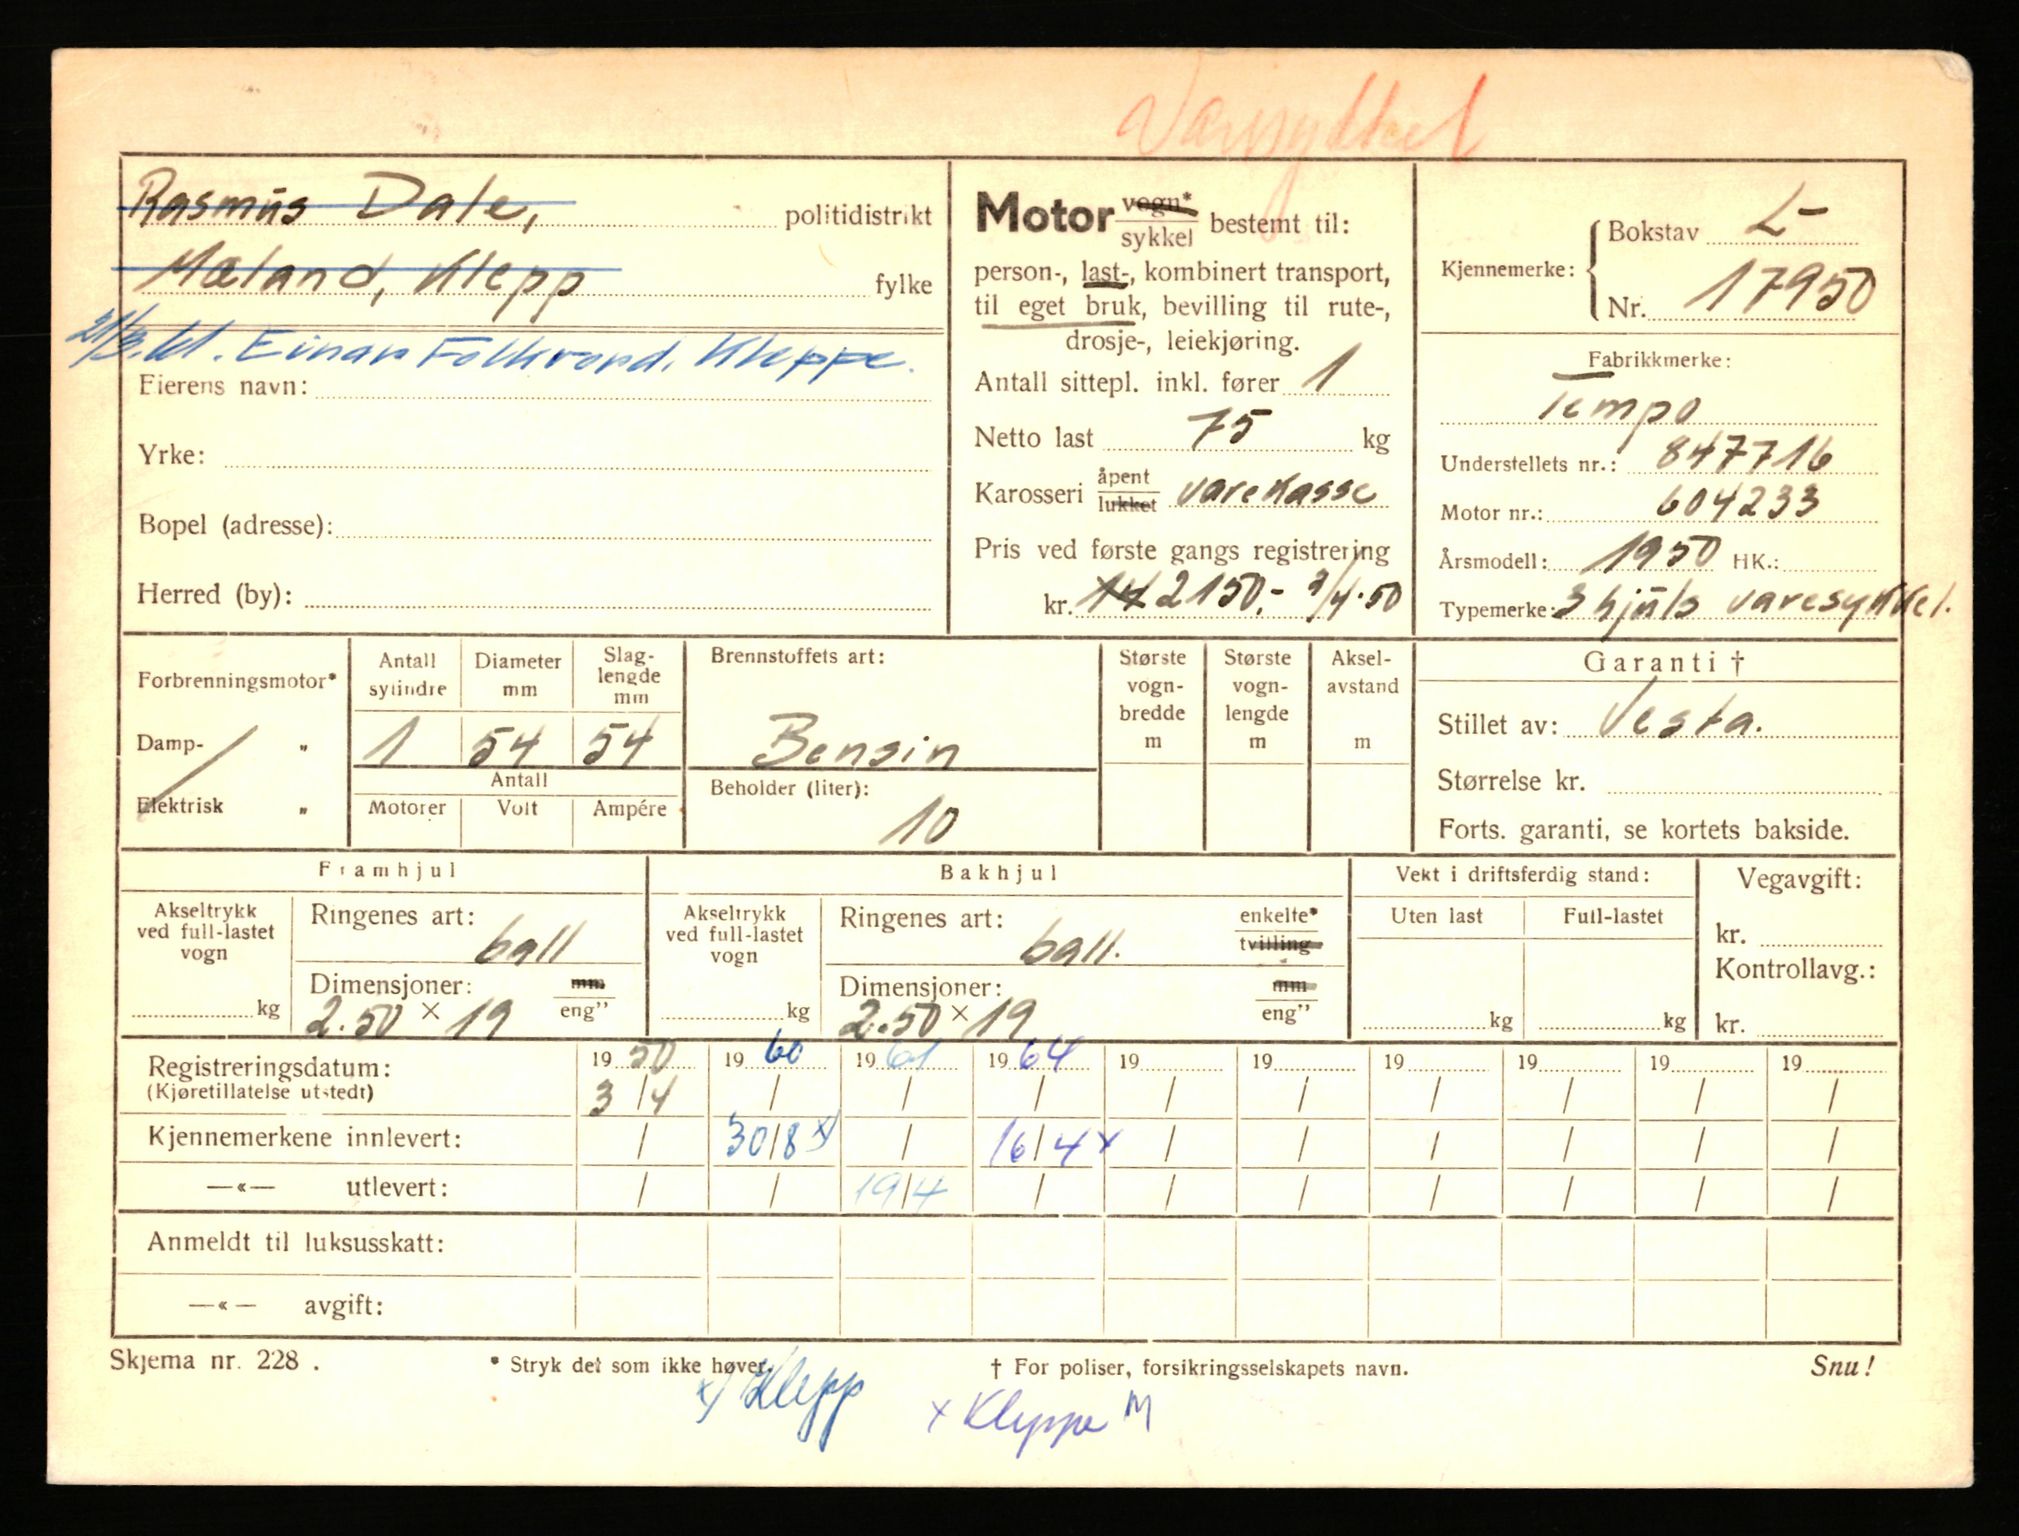 Varesykkel
Rasmus Dale, politidistrikt
Mæland, Klepp fylke
21/3.61. Einar Folkvord, Kleppe.
Eierens navn:
Yrke:
Bopel (adresse):
Herred (by):
Motor vogn*
sykkel bestemt til:
person-, last-, kombinert transport,
til eget bruk, bevilling til rute-,
drosje-, leiekjøring.
Antall sittepl. inkl. fører 1
Netto last 75 kg
Karosseri åpent
lukket varekasse
Pris ved første gangs registrering
kr. 2150,- 3/4-50
Kjennemerke: Bokstav L-
Nr. 17950
Fabrikkmerke:
Tempo
Understellets nr.: 847716
Motor nr.: 604233
Årsmodell: 1950 HK.:
Typemerke: 3 hjuls varesykkel.
Forbrenningsmotor*
Damp- "
Elektrisk "
Antall sylindre
Diameter mm
Slag-lengde mm
1 54 54
Antall
Motorer Volt Ampére
Brennstoffets art:
Bensin
Beholder (liter):
10
Største vogn-bredde m
Største vogn-lengde m
Aksel-avstand m
Garanti †
Stillet av: Vesta.
Størrelse kr.
Forts. garanti, se kortets bakside.
Framhjul
Akseltrykk ved full-lastet vogn
kg
Ringenes art:
ball
Dimensjoner: mm
2.50 × 19 eng"
Bakhjul
Akseltrykk ved full-lastet vogn
kg
Ringenes art: enkelte*
ball. tvilling
Dimensjoner: mm
2.50 × 19 eng"
Vekt i driftsferdig stand:
Uten last Full-lastet
kg kg
Vegavgift:
kr.
Kontrollavg.:
kr.
Registreringsdatum: 1950 1960 1961 1964 19 19 19 19 19 19
(Kjøretillatelse utstedt) 3/4 / / / / / / / / /
Kjennemerkene innlevert: / 30/8 x) / 16/4 x / / / / / /
—«— utlevert: / / 19/4 / / / / / / /
Anmeldt til luksusskatt:
—«— avgift:
Skjema nr. 228 .
* Stryk det som ikke høver.
† For poliser, forsikringsselskapets navn.
Snu!
x) Klepp
x Kleppe M